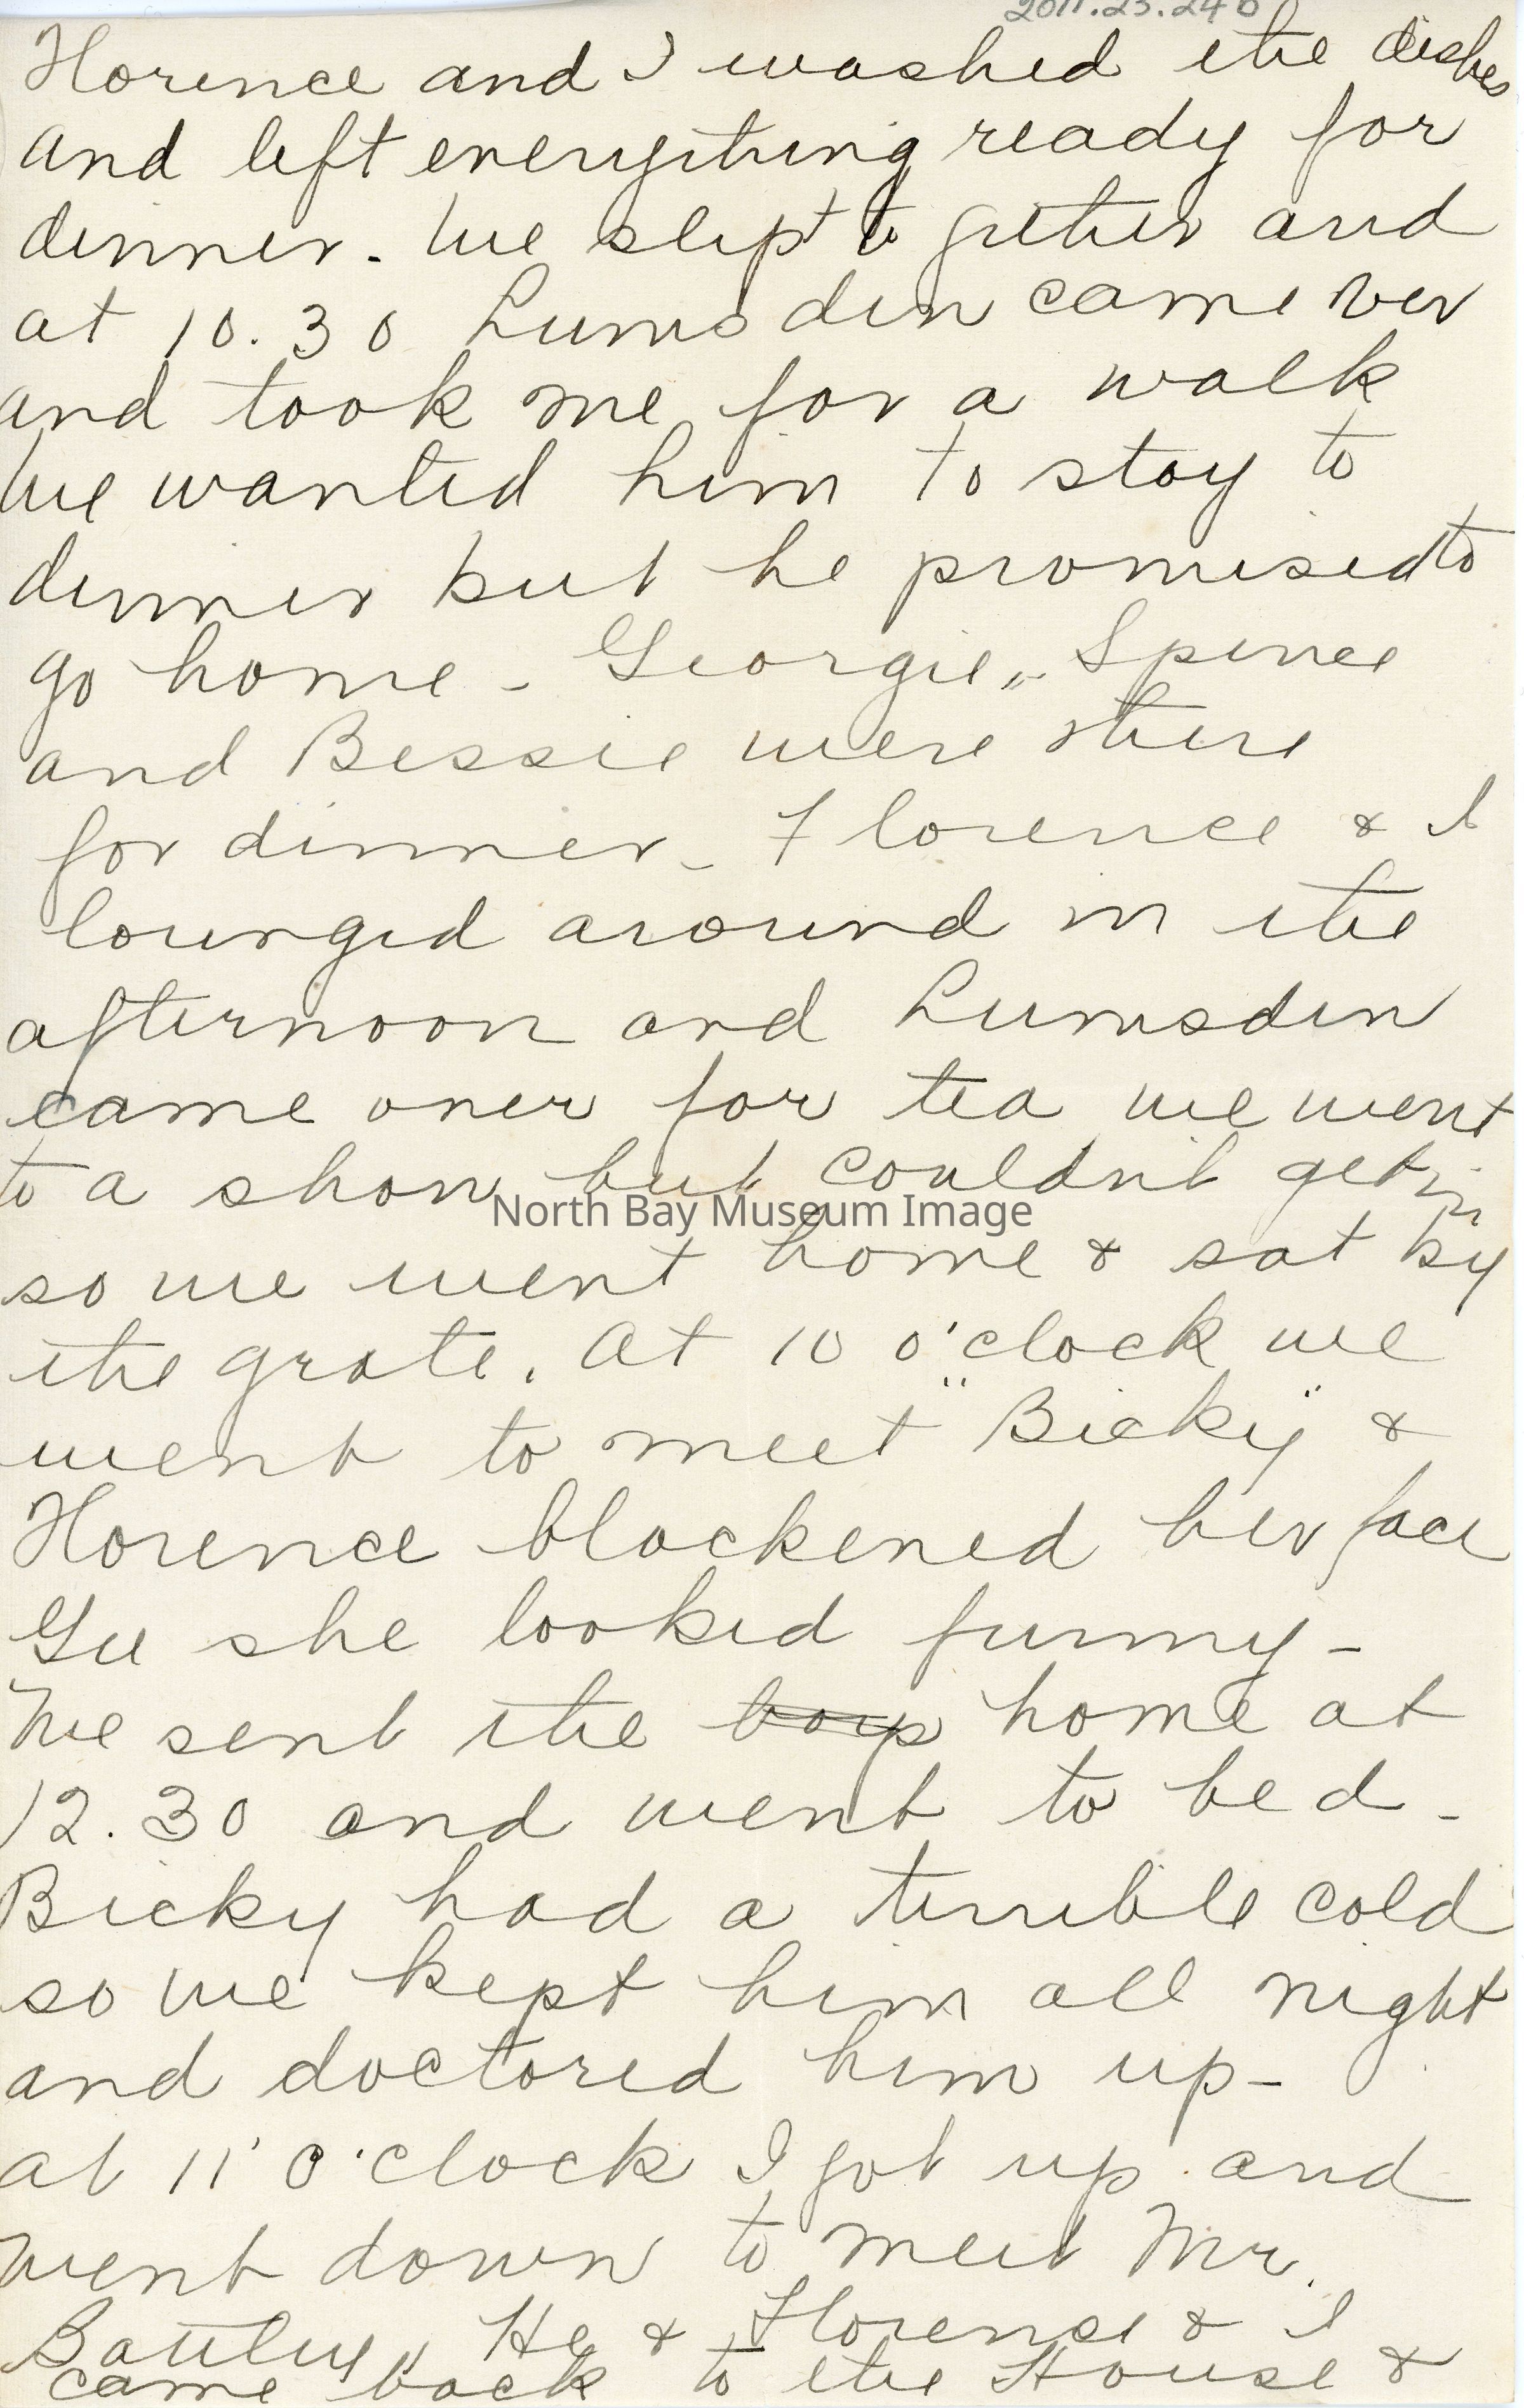 2011.23.24b
Florence and I washed the dishes
and left everything ready for
dinner. We slept together and
at 10.30 Lumsden came over
and took me for a walk
We wanted him to stay to
dinner but he promised to
go home - Georgie, Spence
and Bessie were there
for dinner - Florence & I
lounged around in the
afternoon and Lumsden
came over for tea we went
to a show but couldn't get in
so we went home & sat by
the grate. At 10 o'clock we
went to meet "Bicky" &
Florence blackened her face
Gee she looked funny -
We sent the boys home at
12.30 and went to bed -
Bicky had a terrible cold
so we kept him all night
and doctored him up -
at 11 o'clock I got up and
went down to meet Mr.
He & Florence & I
came back to the House &
North Bay Museum Image